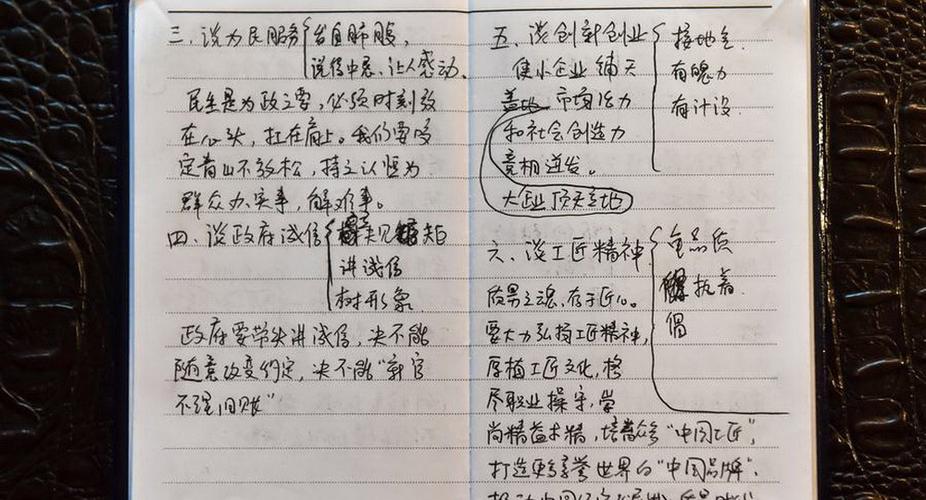 三、谈为民服务{发自肺腑,
说得中意、让人感动、
民生是为政之要,必须时刻放
在心头,扛在肩上。我们要咬
定青山不放松,持之以恒为
群众办实事,解难事。
四、谈政府诚信{规矩
讲诚信
树形象
政府要带头讲诚信,决不能
随意改变约定,决不能“新官
不理旧账”
五、谈创新创业{接地气
有魄力
有计设
使小企业铺天
盖地 市场活力
和社会创造力
竞相迸发。
大企业顶天立地
六、谈工匠精神{重品质
执着
倡
质量之魂,存于匠心。
要大力弘扬工匠精神,
厚植工匠文化,恪
尽职业操守,崇
尚精益求精,培育众多“中国工匠”,
打造更多享誉世界的“中国品牌”,